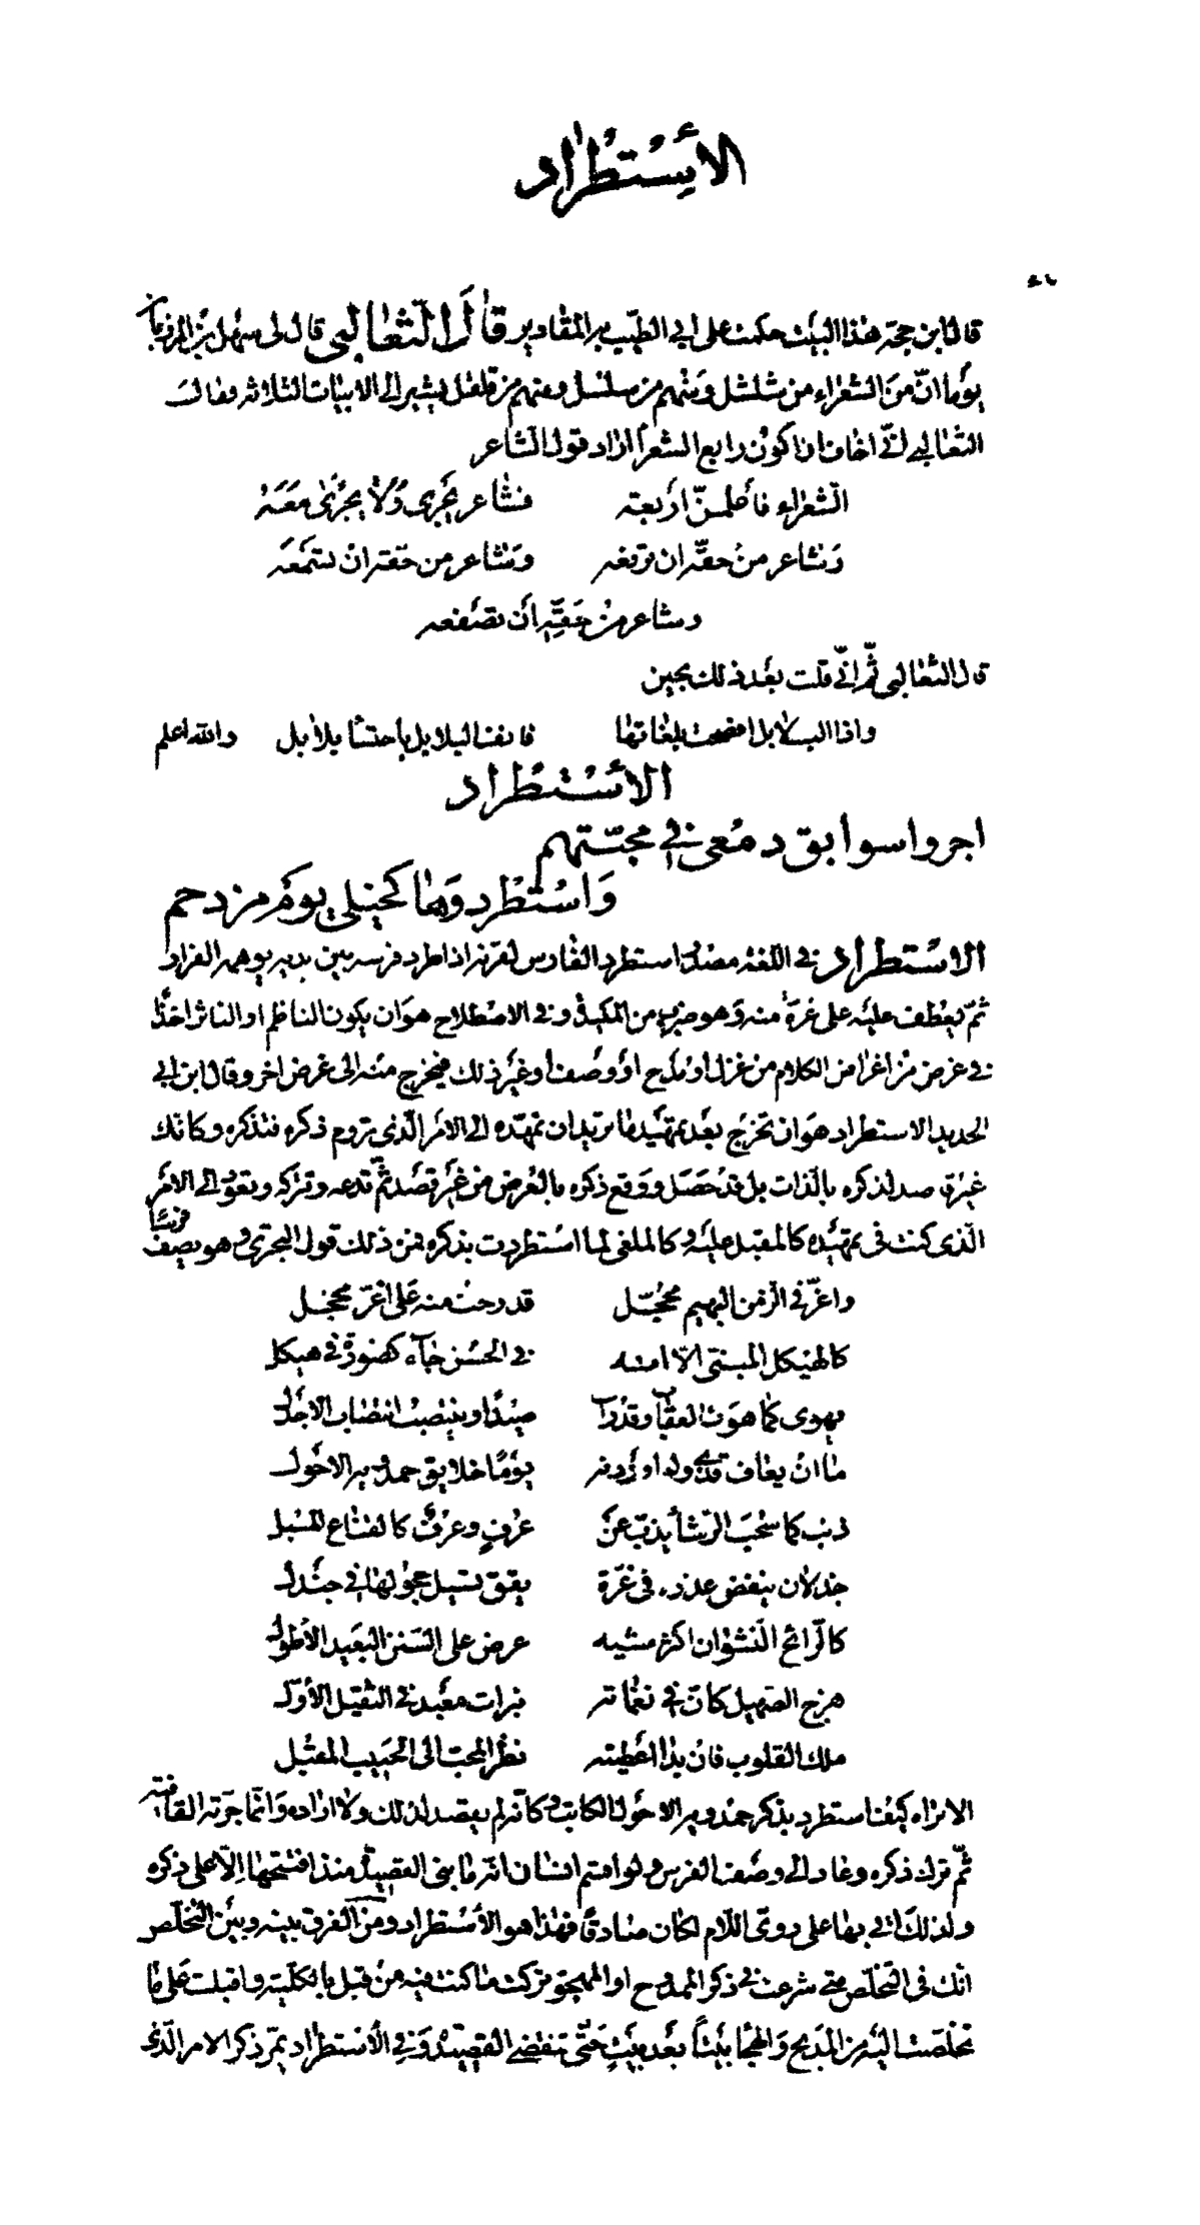 الأستطراد
قال ابن حجة هذا البيت حكمت على ابي الطيب به المقادير قال الثعالبي قال لى سهل بن المرزبان
يوما ان من الشعراء من شلشل ومنهم من سلسل ومنهم من قلقل يشير الى الابيات الثلاثة وقال
الثعالبي انى اخاف ان اكون رابع الشعرا اراد قول الشاعر
الشعراء فاعلمن اربعه فشاعر يجرى ولا يجرى معه
وشاعر من حقه ان ترفعه وشاعر من حقه ان تسمعه
وشاعر من حقه ان تصفعه
قال الثعالبي ثم انى قلت بعد ذلك بحين
واذا البلابل افصحت بلغاتها فانف البلابل باحتسا بلابل والله اعلم
الأستطراد
اجروا سوابق دمعى فى محبتهم
واستطردوها كخيلى يوم مزدحم
الاستطراد فى اللغة مصدر استطرد الفارس لقرنه اذا طرد فرسه بين يديه يوهمه الفرار
ثم يعطف عليه على غرة منه وهو ضرب من المكيدة وفى الاصطلاح هو ان يكون الناظم او الناثر اخذا
فى غرض من اغراض الكلام من غزل او مدح او وصف او غير ذلك فيخرج منه الى غرض اخر وقال ابن ابى
الحديد الاستطراد هو ان تخرج بعد تمهيد ما تريد ان تمهده الى الامر الذى تروم ذكره فتذكره وكانك
غير قاصد لذكره بالذات بل قد حصل ووقع ذكره بالعرض من غير قصد ثم تدعه وتتركه وتعود الى الامر
الذى كنت فى تمهيده كالمقبل عليه وكالملغى لما استطردت بذكره فمن ذلك قول البحترى وهو يصف فرسا
واغر فى الزمن البهيم محجل قد رحت منه على اغر محجل
كالهيكل المبنى الا انه فى الحسن جاء كصورة فى هيكل
يهوى كما هوت العقاب وقد رات صيدا وينتصب انتصاب الاجدل
ما ان يعاف قذى ولو اوردته يوما خلايق حمدويه الاحول
ذنب كما سحب الرشا يذب عن عرف وعرف كالقناع المسبل
جذلان ينفض عذرة فى غرة يقق تسيل حجولها فى جندل
كالرائح النشوان اكثر مشيه عرض على السنن البعيد الاطول
هزج الصهيل كان فى نغماته نبرات معبد فى الثقيل الاول
ملك القلوب فان بدا اعطيته نظر المحب الى الحبيب المقبل
الا تراه كيف استطرد بذكر حمدويه الاحول الكاتب وكانه لم يقصد لذلك ولا اراده وانما جرته القافية
ثم ترك ذكره وعاد الى وصف الفرس ولو اقسم انسان انه ما بنى القصيدة منذ افتتحها الا على ذكره
ولذلك اتى بها على روى اللام لكان صادقا فهذا هو الأستطراد ومن الفرق بينه وبين التخلص
انك فى التخلص متى شرعت فى ذكر الممدوح او المهجو تركت ما كنت فيه من قبل بالكلية واقبلت على ما
تخلصت اليه من المديح والهجا بيتا بعد بيت حتى تنقضى القصيدة وفى الأستطراد تمر بذكر الامر الذى